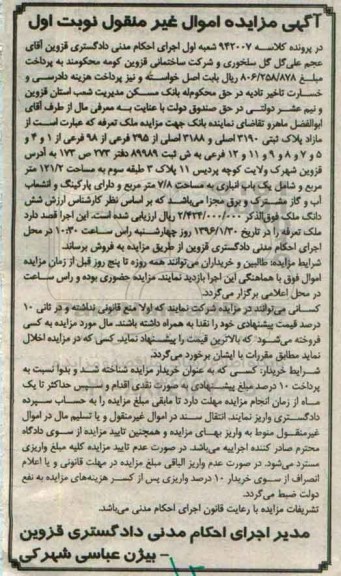 آگهی مزایده اموال غیر منقول نوبت اول
در پرونده کلاسه ۹۴۲۰۰۷ شعبه اول اجرای احکام مدنی دادگستری قزوین آقای
حجم علی‌گل گل سلخوری و شرکت ساختمانی قزوین کومه محکومند به پرداخت
مبلغ ۸۰۶/۲۵۸/۸۷۸ ریال بابت اصل خواسته و نیز پرداخت هزینه دادرسی و
خسارت تاخیر تادیه در حق محکوم‌له بانک مسکن مدیریت شعب استان قزوین
و نیم عشر دولتی در حق صندوق دولت با عنایت به معرفی مال از طرف آقای
ابوالفضل ماهرو تقاضای نماینده بانک جهت مزایده ملک تعرفه که عبارت است از
مازاد پلاک ثبتی ۳۱۹۰ اصلی و ۳۱۸۸ اصلی از ۲۹۵ فرعی از ۹۸ فرعی از ۱ و ۴ و
۵ و ۷ و ۸ و ۹ و ۱۱ و ۱۲ فرعی به ش ثبت ۸۹۹۸۹ دفتر ۲۷۳ ص ۱۷۳ به آدرس
قزوین شهرک ولایت کوچه پردیس ۱۱ پلاک ۳ طبقه سوم به مساحت ۱۲۱/۲ متر
مربع و شامل یک باب انباری به مساحت ۷/۸ متر مربع و دارای پارکینگ و انشعاب
آب و گاز مشترک و برق مجزا می‌باشد که بر اساس نظر کارشناس ارزش شش
دانگ ملک فوق‌الذکر ۲/۴۲۴/۰۰۰/۰۰۰ ریال ارزیابی شده است. این اجرا قصد دارد
ملک تعرفه را در تاریخ ۱۳۹۶/۱/۳۰ روز چهارشنبه راس ساعت ۱۰:۳۰ در محل
اجرای احکام مدنی دادگستری قزوین از طریق مزایده به فروش برساند.
شرایط مزایده: طالبین و خریداران می‌توانند همه روزه تا پنج روز قبل از زمان مزایده
اموال فوق با هماهنگی این اجرا بازدید نمایند. مزایده حضوری بوده و راس ساعت
در محل اعلامی برگزار می‌گردد.
کسانی می‌توانند در مزایده شرکت نمایند که اولا منع قانونی نداشته و در ثانی ۱۰
درصد قیمت پیشنهادی خود را نقدا به همراه داشته باشند. مال مورد مزایده به کسی
فروخته می‌شود که بالاترین قیمت را پیشنهاد نماید. کسی که در مزایده اخلال
نماید مطابق مقررات با ایشان برخورد می‌گردد.
شرایط خریدار: کسی که به عنوان خریدار مزایده شناخته شد و بدوا نسبت به
پرداخت ۱۰ درصد مبلغ پیشنهادی به صورت نقدی اقدام و سپس حداکثر تا یک
ماه از زمان انجام مزایده مهلت دارد تا مابقی مبلغ مزایده را به حساب سپرده
دادگستری واریز نمایند. انتقال سند در اموال غیرمنقول و یا تسلیم مال در اموال
غیرمنقول منوط به واریز بهای مزایده و همچنین تایید مزایده از سوی دادگاه
محترم صادر کننده اجراییه می‌باشد. در صورت عدم تایید مزایده کلیه مبلغ واریزی
مسترد می‌شود. در صورت عدم واریز الباقی مبلغ مزایده در مهلت قانونی و یا اعلام
انصراف از سوی خریدار ۱۰ درصد واریزی پس از کسر هزینه‌های مزایده به نفع
دولت ضبط می‌گردد.
تشریفات مزایده با رعایت قانون اجرای احکام مدنی می‌باشد.
مدیر اجرای احکام مدنی دادگستری قزوین
– بیژن عباسی شهرکی